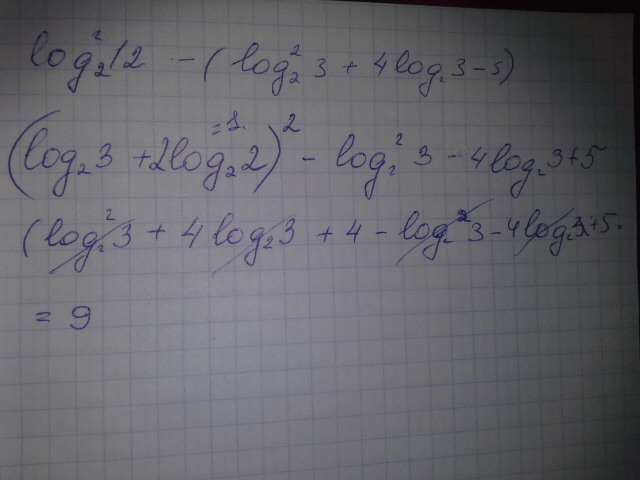 log₂²12 - (log₂²3 + 4log₂3 - 5)
=1.
(log₂3 + 2log₂2)² - log₂²3 - 4log₂3 + 5
(log₂²3 + 4log₂3 + 4 - log₂²3 - 4log₂3 + 5.
= 9